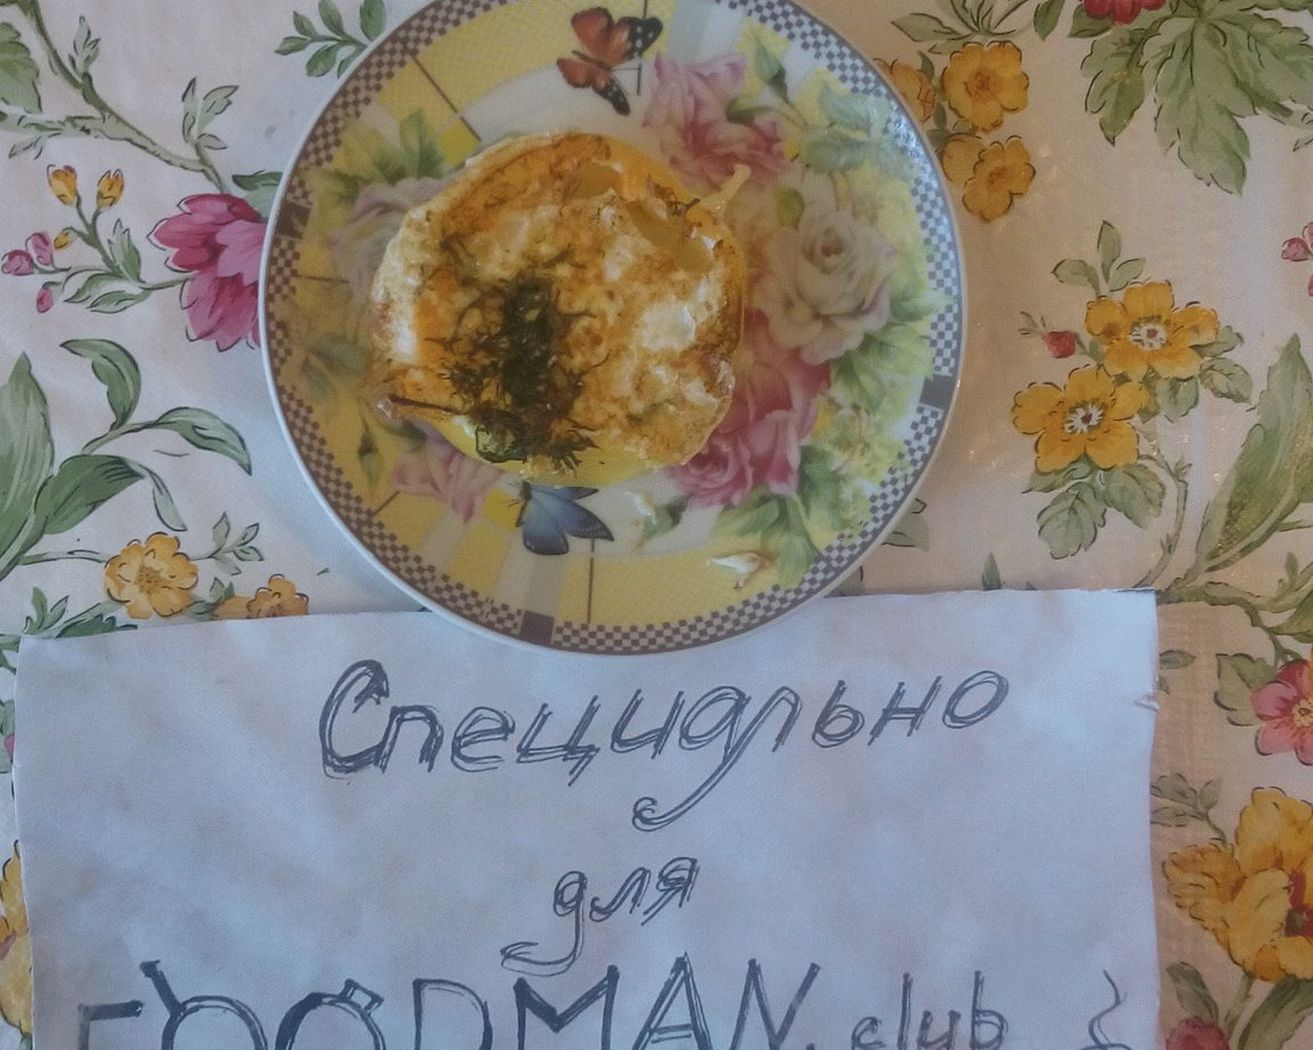 Специально
для
FOODMAN.club